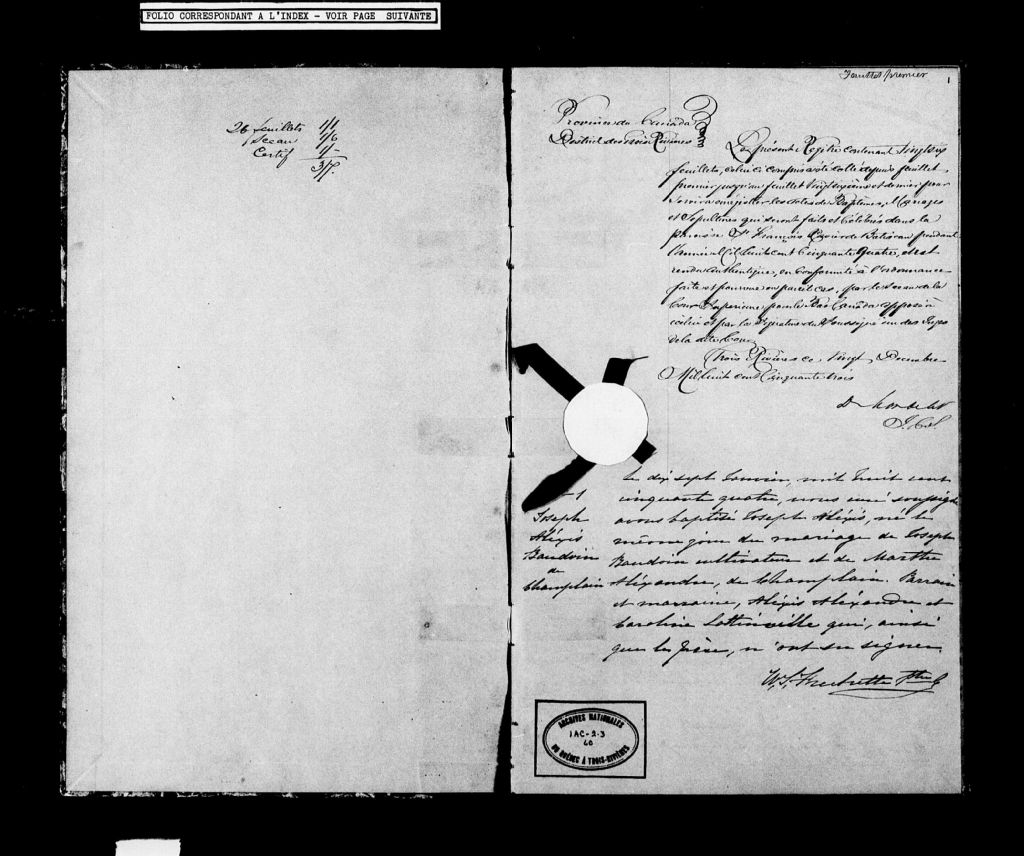 FOLIO CORRESPONDANT A L'INDEX - VOIR PAGE SUIVANTE
26 feuillets 1/1
1 Sceau 1/6
Certif 1/-
3/7.
feuillet premier
1
Province du Canada
District des Trois Rivières
Le présent Registre contenant Vingt six
feuillets, celui ci compris a été côté depuis feuillet
premier jusqu'au feuillet Vingt sixième et dernier pour
Servir à enrégistrer les Actes de Baptêmes, Mariages
et Sépultures qui seront faits et Célébrés dans la
paroisse St François Xavier de Batiscan pendant
l'année Mil huit cent Cinquante Quatre, et est
rendu Authentique, en Conformité à l'ordonnance
faite et pourvue en pareil cas, par le Sceau de la
Cour Supérieure pour le Bas Canada apposé à
celui et par la Signature du Soussigné un des Juges
de la dite Cour
Trois Rivières ce Vingt Decembre
Mil huit cent Cinquante trois
D Mondelet
J.C.S.
Le dix sept Janvier, mil huit cent
cinquante quatre, nous curé soussigné
avons baptisé Joseph Aléxis, né le
même jour du mariage de Joseph
Baudoin cultivateur et de Marthe
Aléxandre, de Champlain. Parrain
et marraine, Aléxis Aléxandre et
Caroline Lottinville qui, ainsi
que le père, n'ont su signer
B-1
Joseph
Aléxis
Baudoin
de
Champlain
W. S. Frechette Ptre
ARCHIVES NATIONALES
1AC-2-3
60
DU QUÉBEC À TROIS-RIVIÈRES